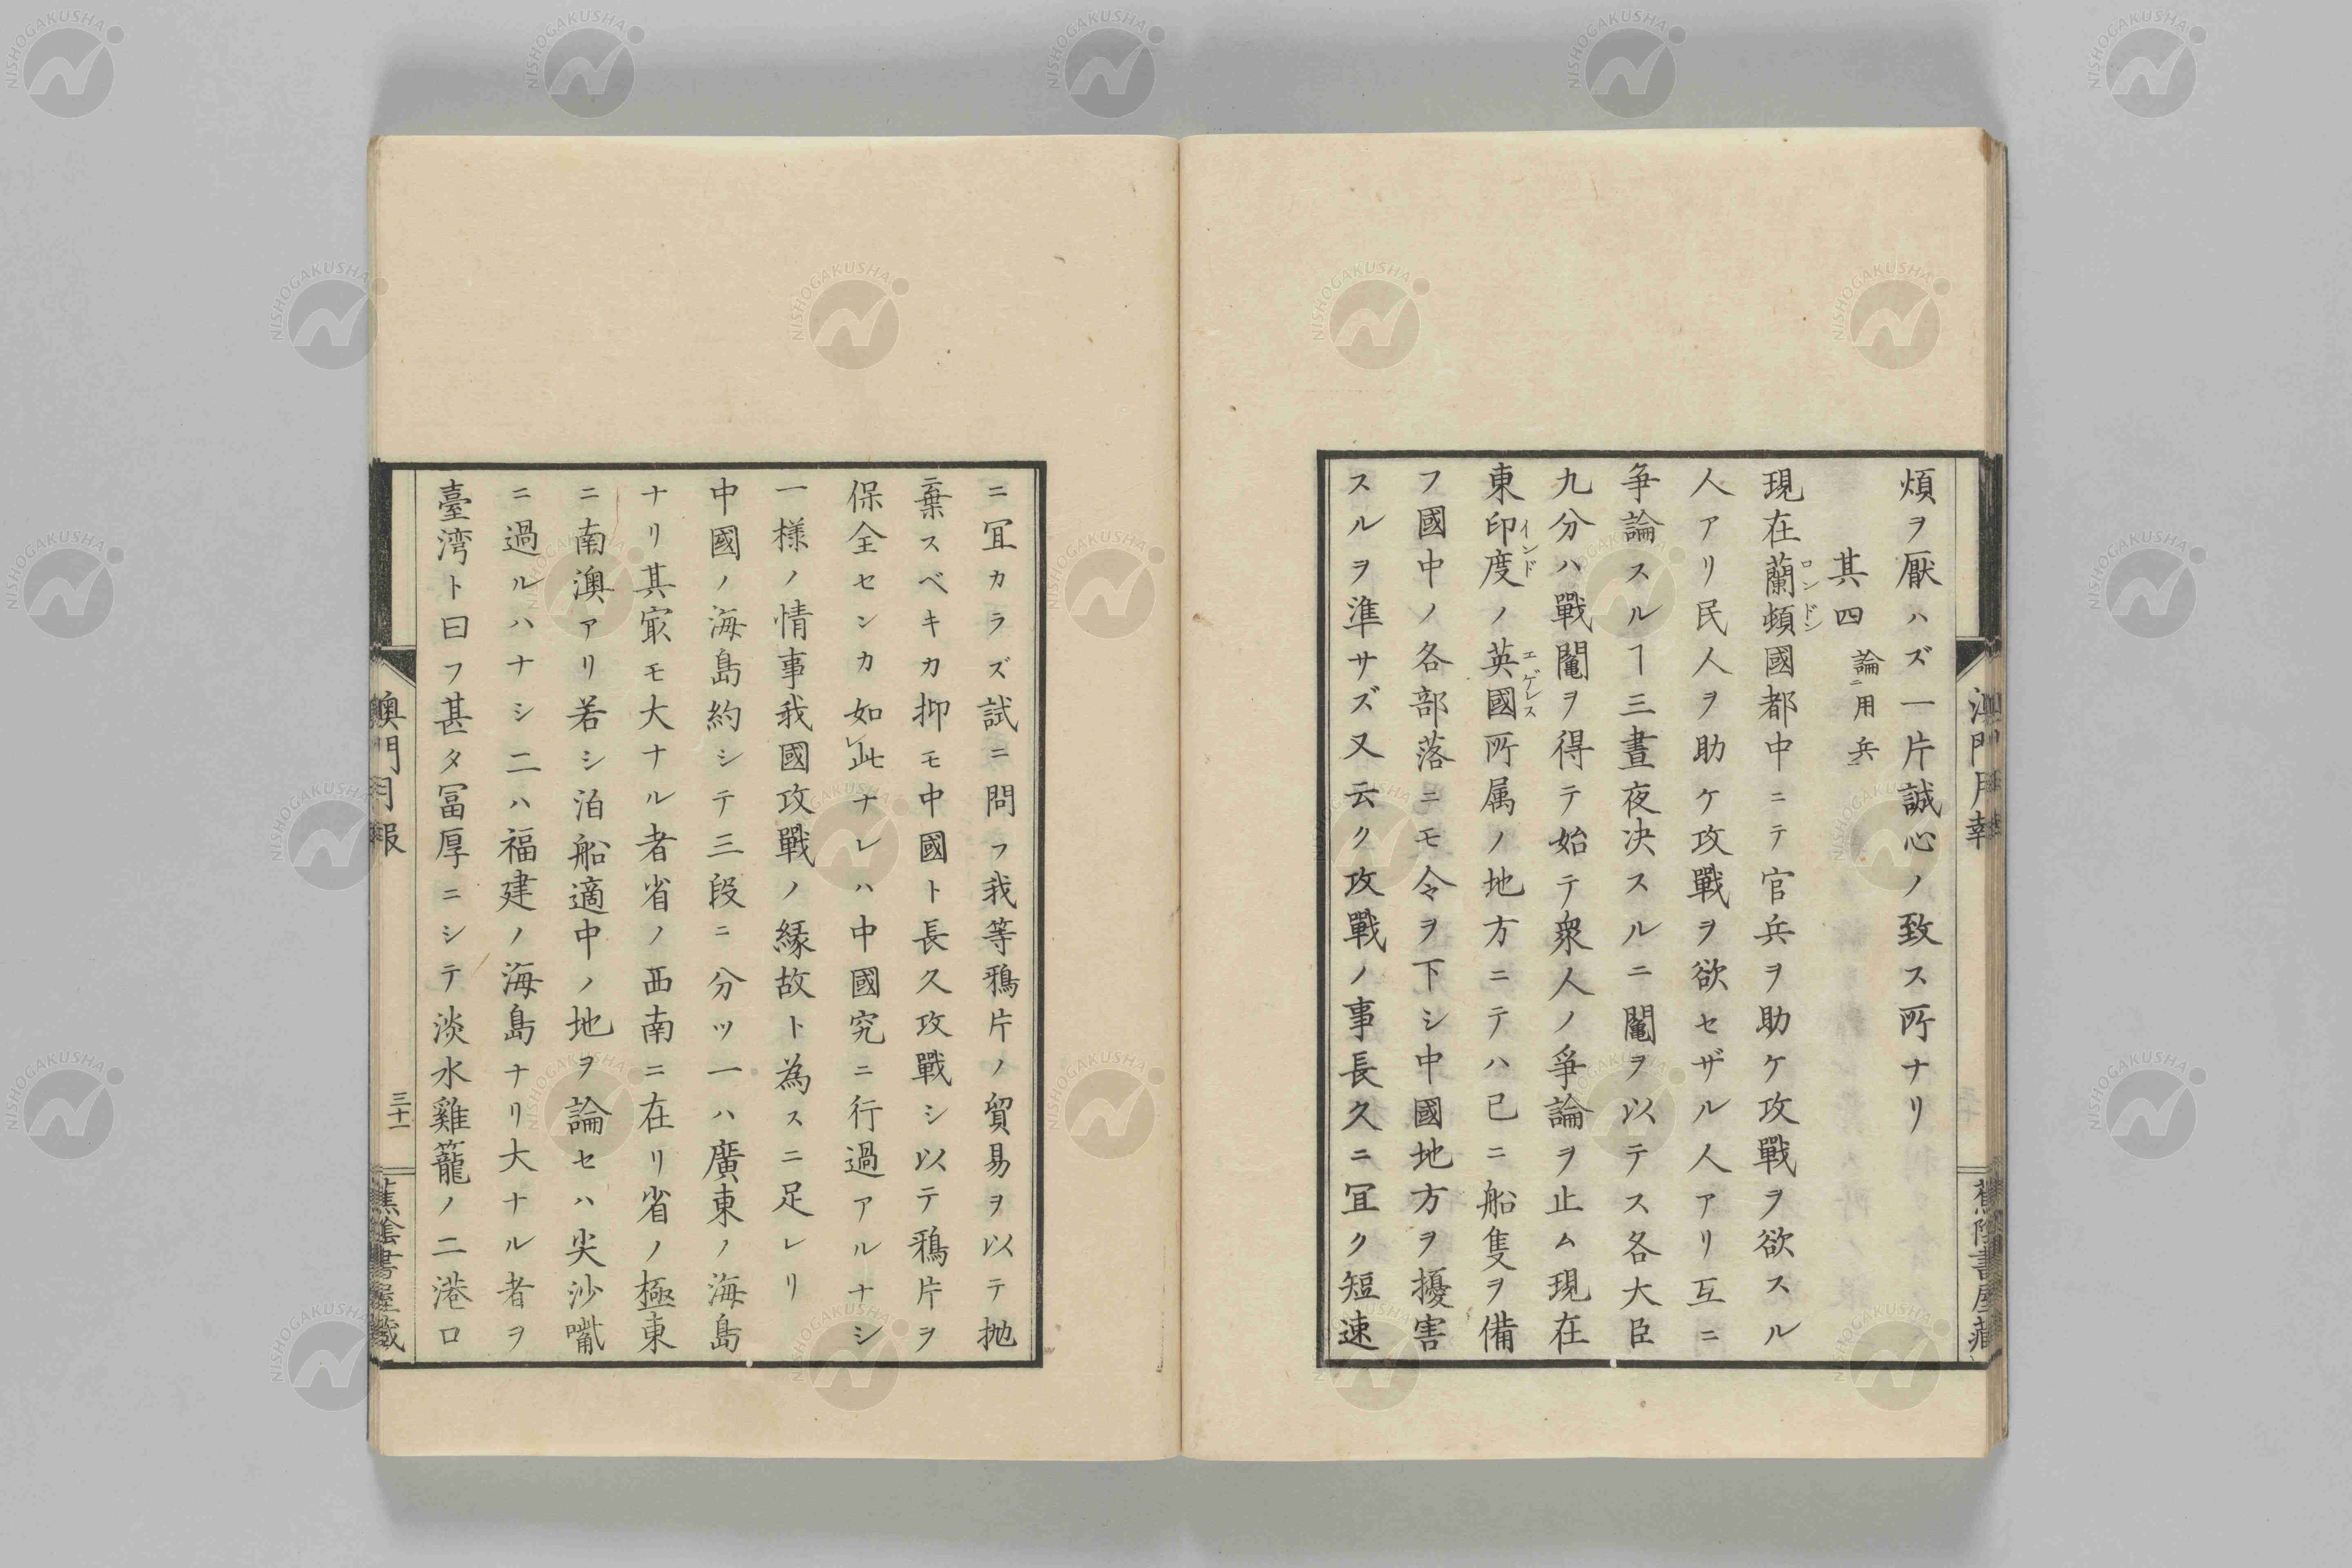 煩ヲ厭ハズ一片誠心ノ致ス所ナリ
其四 論ニ用兵一
現在蘭頓國都中ニテ官兵ヲ助ケ攻戰ヲ欲スル
ロンドン
人アリ民人ヲ助ケ攻戰ヲ欲セザル人アリ互ニ
争論スルヿ三晝夜决スルニ鬮ヲ以テス各大臣
九分ハ戰鬮ヲ得テ始テ衆人ノ爭論ヲ止ム現在
東印度ノ英國所属ノ地方ニテハ已ニ船隻ヲ備
インド
エゲレス
フ國中ノ各部落ニモ令ヲ下シ中國地方ヲ擾害
スルヲ準サズ又云ク攻戰ノ事長久ニ冝ク短速
澳門月報
蕉陰書屋藏
ニ冝カラズ試ニ問フ我等鴉片ノ貿易ヲ以テ抛
棄スベキカ抑モ中國ト長久攻戰シ以テ鴉片ヲ
保全センカ如レ此ナレハ中國究ニ行過アルナシ
一樣ノ情事我國攻戰ノ縁故ト為スニ足レリ
中國ノ海島約シテ三段ニ分ツ一ハ廣東ノ海島
ナリ其㝡モ大ナル者省ノ西南ニ在リ省ノ極東
ニ南澳アリ若シ泊船適中ノ地ヲ論セハ尖沙嘴
ニ過ルハナシ二ハ福建ノ海島ナリ大ナル者ヲ
臺湾ト曰フ甚タ冨厚ニシテ淡水雞籠ノ二港口
澳門月報
三十一
蕉陰書屋藏
NISHOGAKUSHA